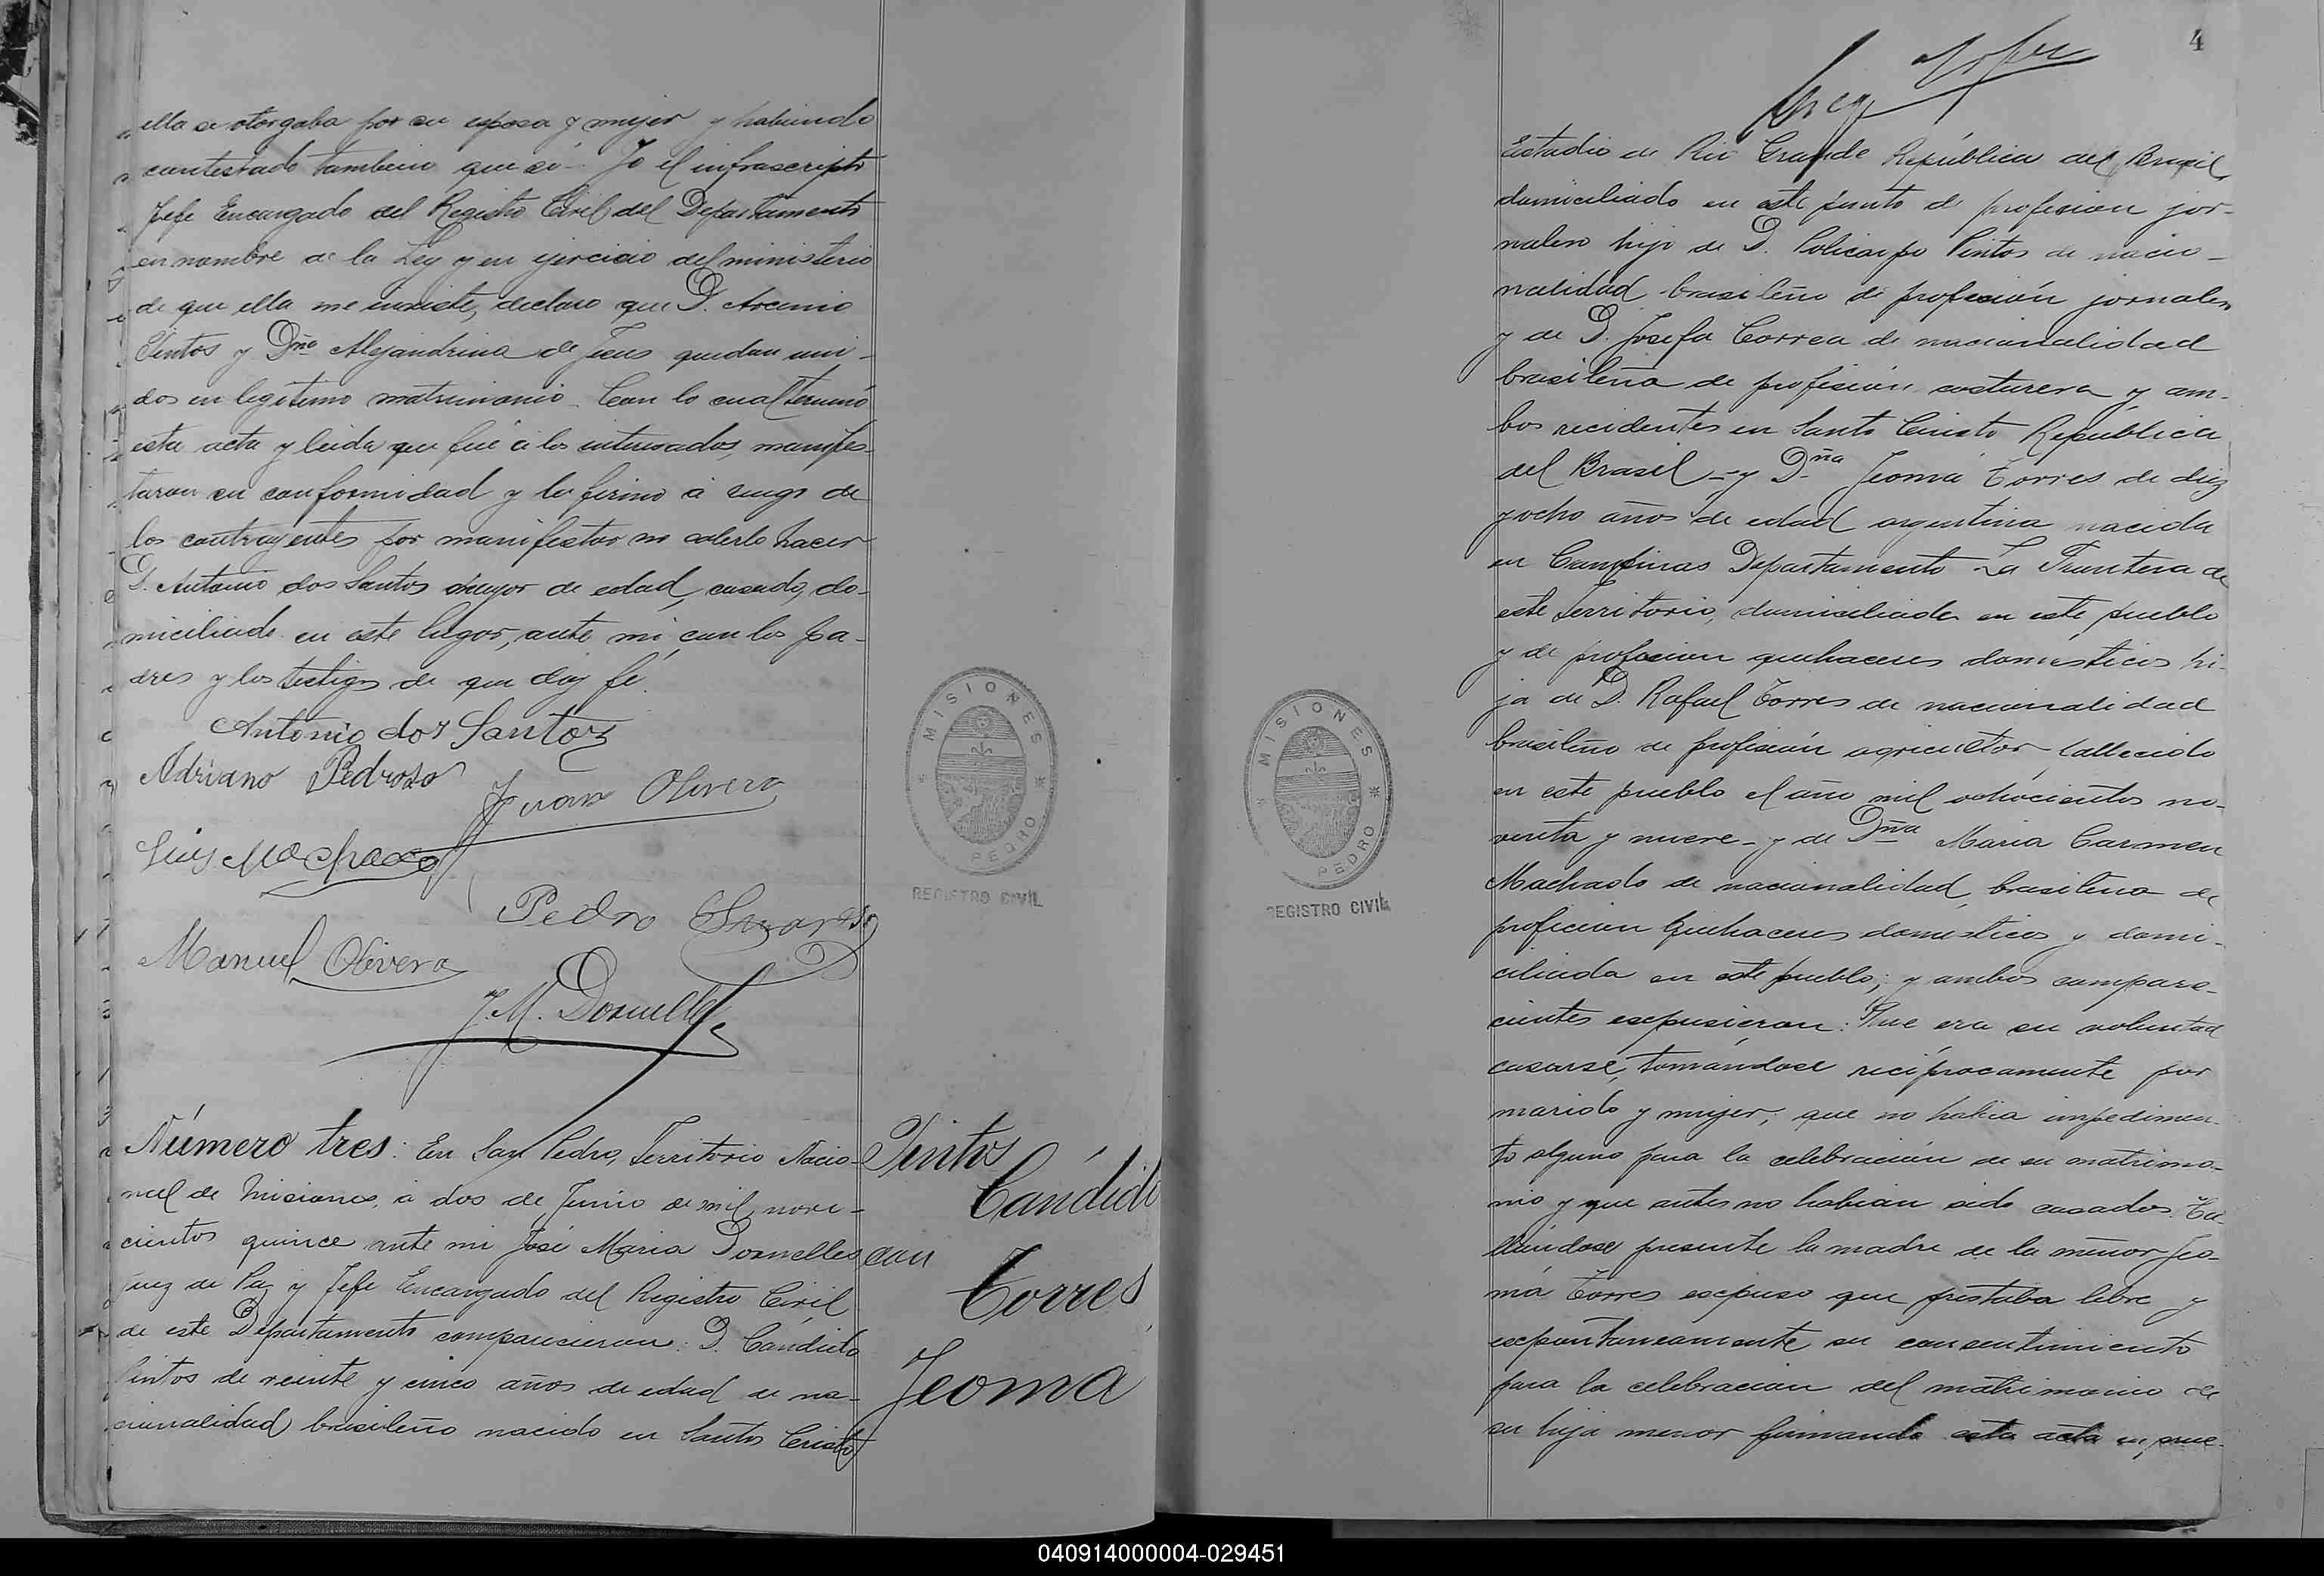 ella se otorgaba por su esposa y mujer y habiendo
contestado tambien que sí - Yo el infrascripto
Jefe Encargado del Registro Civil del Departamento
en nombre de la Ley y en ejercicio del ministerio
de que ella me inviste, declaro que D. Arcenio
Pintos y Dña Alejandrina de Jesus quedan uni-
dos en legítimo matrimonio - Con lo cual terminó
esta acta y leida que fué á los interesados, manifes-
taron su conformidad y la firmo á ruego de
los contrayentes por manifestar no saberlo hacer
D. Antonio dos Santos mayor de edad, casado, do-
miciliado en este lugar, ante mí, con los pa-
dres y los testigos de que doy fé.
Antonio dos Santos
Adriano Pedroso
Juan Olivera
Luis Machado
Pedro
Manuel Olivera
J. M. Dornelles
Número tres: En San Pedro, Territorio Nacio-
nal de Misiones, á dos de Junio de mil nove-
cientos quince ante mi José Maria Dornelles
Juez de Paz y Jefe Encargado del Registro Civil
de este Departamento comparecieron: D. Cándido
Pintos de veinte y cinco años de edad de na-
cionalidad brasileño nacido en Santo Cristo
Pintos
Cándido
con
Torres
Jeoma
MISIONES
PEDRO
REGISTRO CIVIL
4
Estadio en Rio Grande República del Brasil,
domiciliado en este punto de profesion jor-
nalero hijo de D. Policarpo Pintos de nacio-
nalidad brasileño de profesión jornalero
y de D. Josefa Correa de nacionalidad
brasileña de profesión costurera y am-
bos recidentes en Santo Cristo República
del Brasil - y Dña Jeoma Torres de diez
y ocho años de edad argentina nacida
en Campinas Departamento La Frontera de
este Territorio, domiciliada en este pueblo
y de profesion quehaceres domésticos hi-
ja de D. Rafael Torres de nacionalidad
brasileño de profesión agricultor fallecido
en este pueblo el año mil ochocientos no-
venta y nueve - y de Dña Maria Carmen
Machado de nacionalidad brasilena de
profecion quehaceres domesticos y domi-
ciliada en este pueblo; y ambos compare-
cientes expusieron: Que era su voluntad
casarse, tomándose recíprocamente por
marido y mujer, que no habia impedimen-
to alguno para la celebración de su matrimo-
nio y que antes no habian sido casados. Ha-
llándose presente la madre de la menor Jeo-
ma Torres expuso que prestaba libre y
espontaneamente su consentimiento
para la celebracion del matrimonio de
su hija menor firmando esta acta en prue-
MISIONES
PEDRO
REGISTRO CIVIL
040914000004-029451